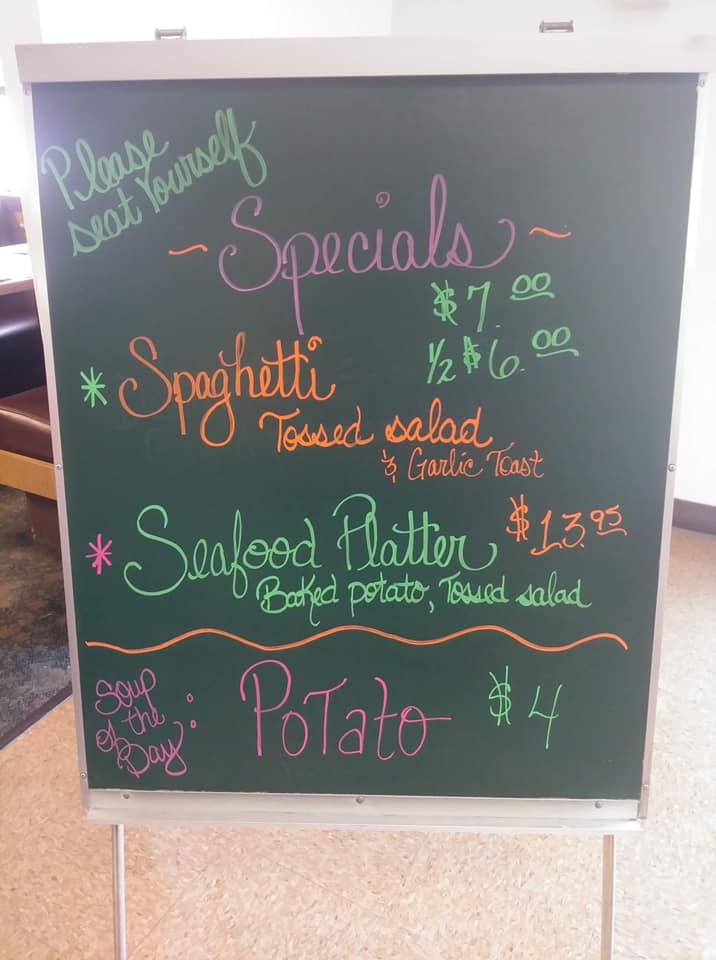 Please
seat Yourself
~ Specials ~
$7.00
½ $6.00
* Spaghetti
Tossed salad
& Garlic Toast
* Seafood Platter $13.95
Baked potato, Tossed salad
Soup
of the
Day: PoTato $4